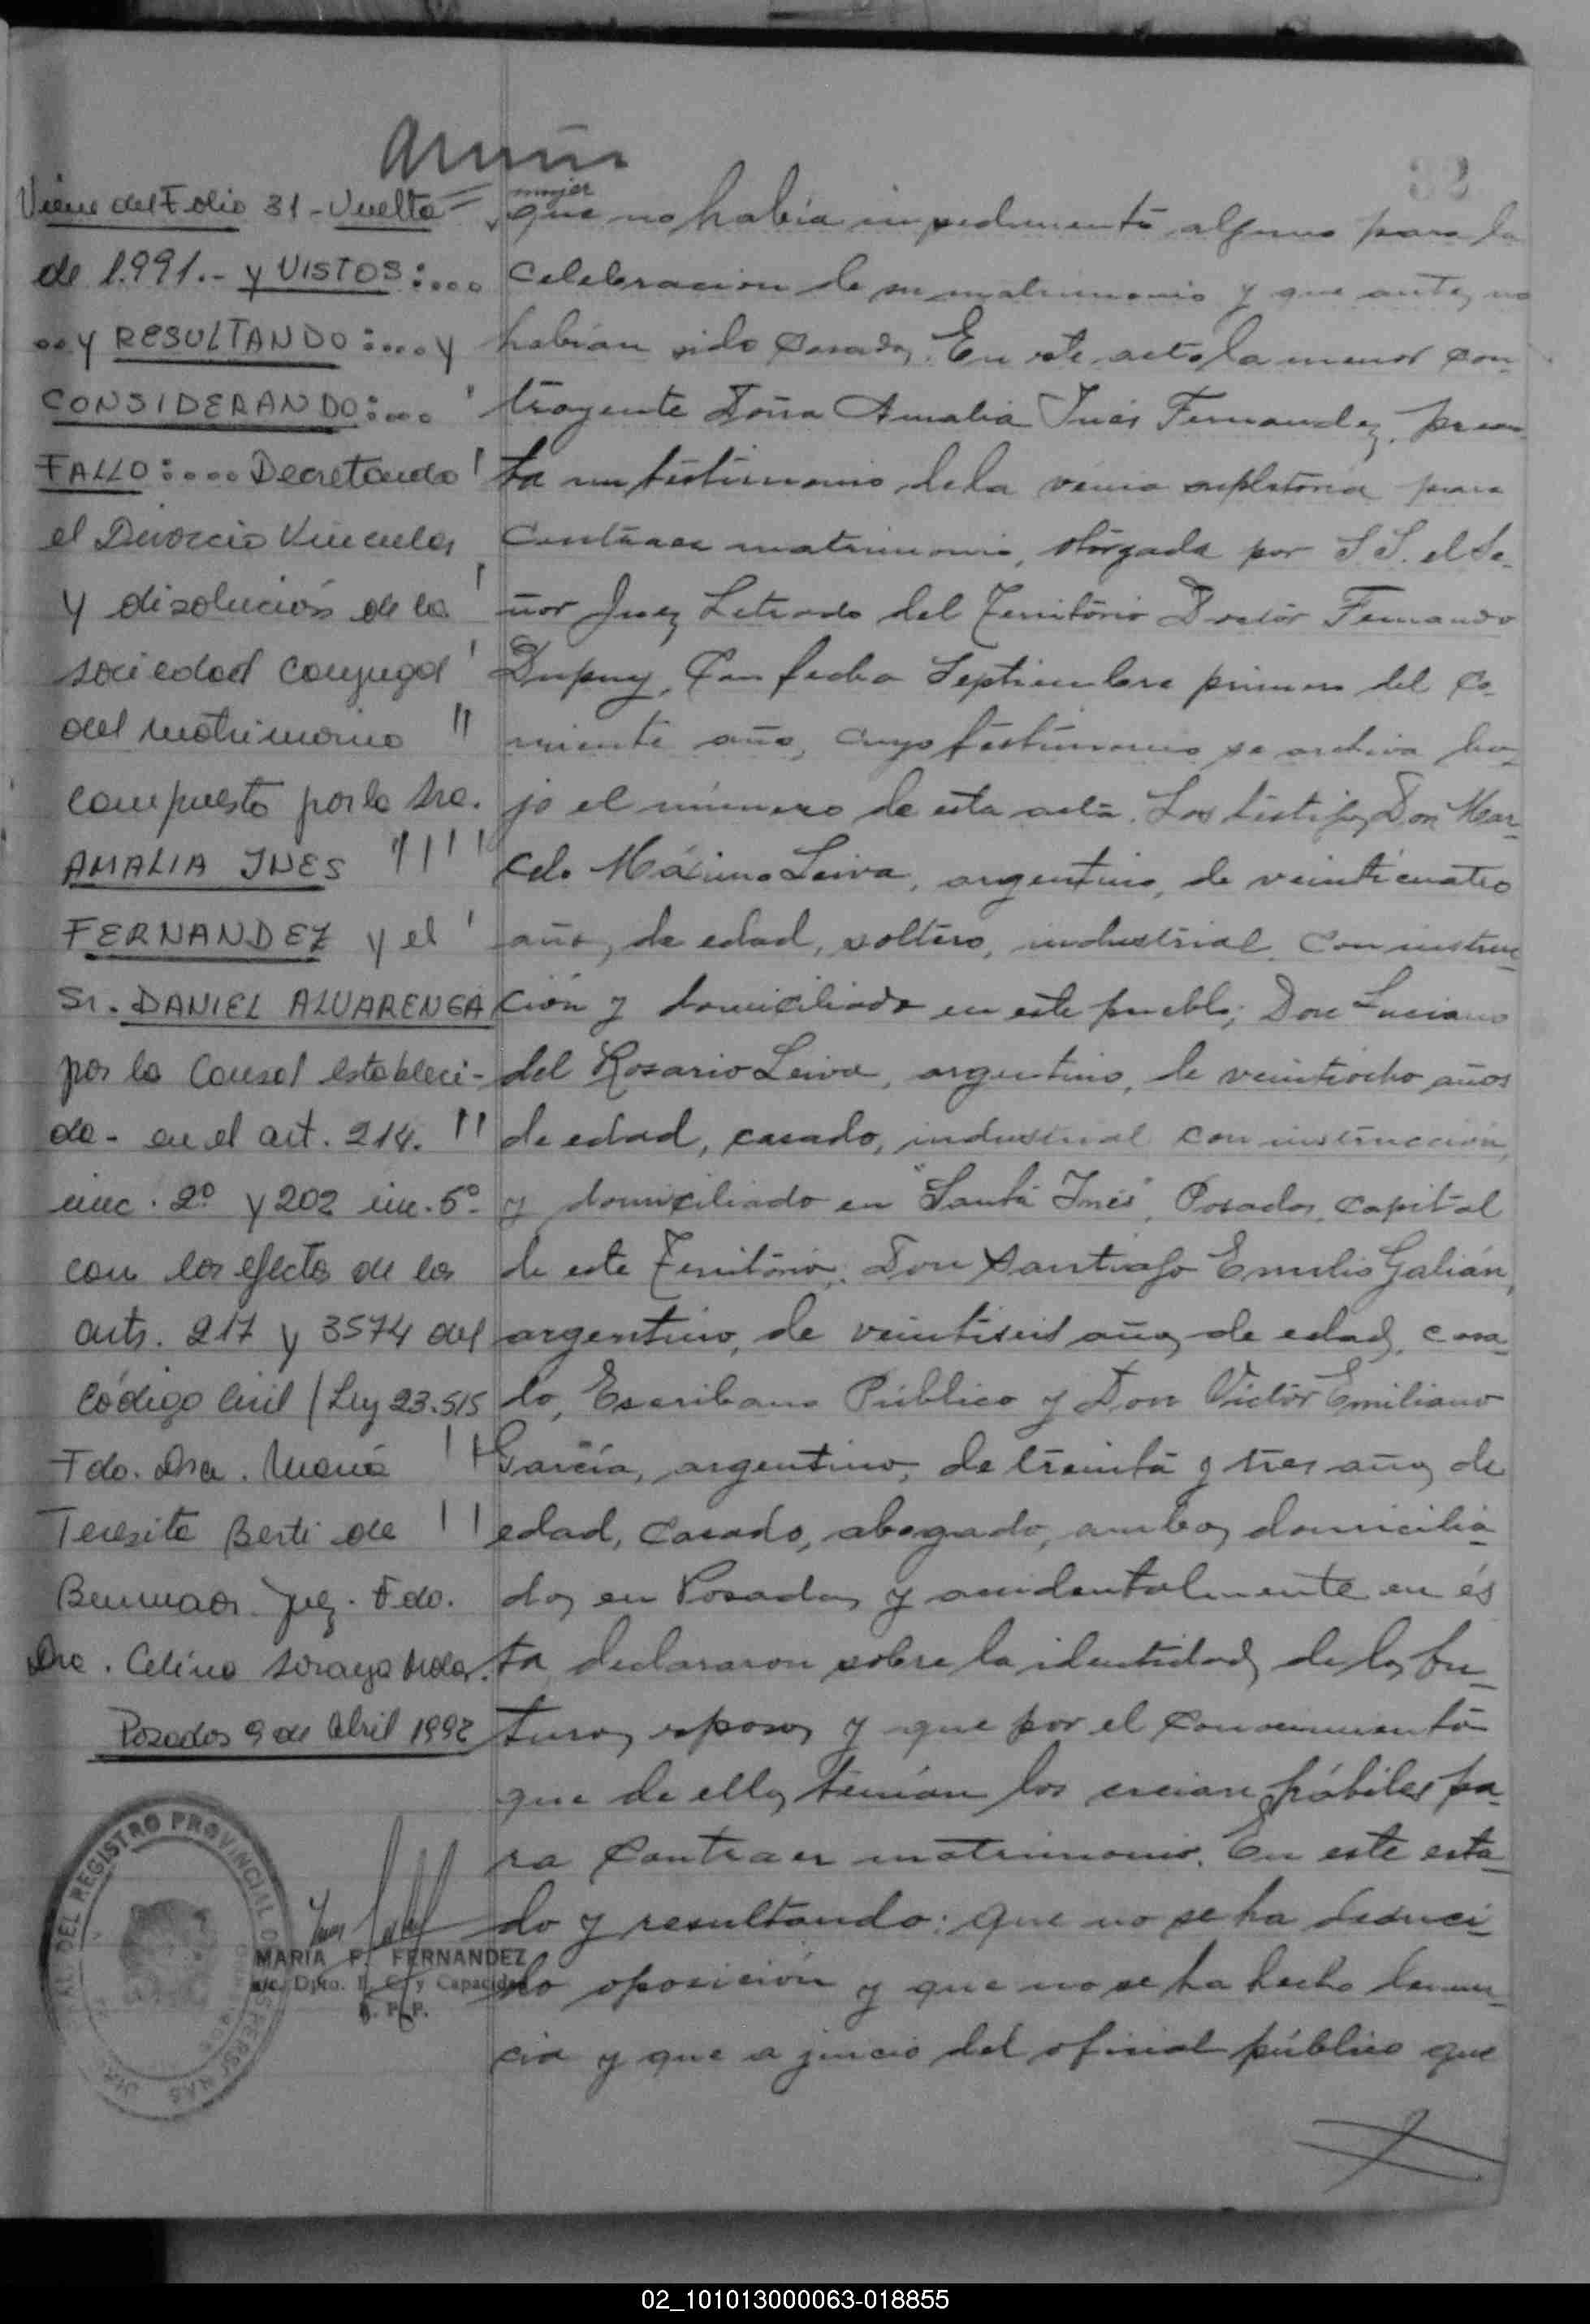 32
Viene del Folio 31 - Vuelta
de 1.991.- y VISTOS:....
...y RESULTANDO:.... y
CONSIDERANDO:...
FALLO:.... Decretando
el Divorcio Vincular
y disolución de la
sociedad conyugal
del matrimonio
compuesto por la Sra.
AMALIA INES
FERNANDEZ y el
Sr. DANIEL ALVARENGA
por la causal estableci-
da - en el art. 214.
inc. 2º y 202 inc. 5º
con los efectos de los
arts. 217 y 3574 del
Código Civil (Ley 23.515
Fdo. Dra. María
Teresita Berti de
Juez. Fdo.
Dra. Celina
Posadas 9 de Abril 1992
MARIA F. FERNANDEZ
Dpto. E. C. y Capacidad
R. P. P.
DEL REGISTRO PROVINCIAL DE PERSONAS
mujer
que no había impedimento alguno para la
celebracion de su matrimonio y que antes no
habían sido casados. En este acto la menor con-
trayente Doña Amalia Inés Fernandez, presen-
ta un testimonio de la venia supletoria para
contraer matrimonio, otorgada por S.S. el Se-
ñor Juez Letrado del Territorio Doctor Fernando
Dupuy, con fecha Septiembre primero del co-
rriente año, cuyo testimonio se archiva ba-
jo el número de esta acta. Los testigos Don Mar-
celo Máximo Leiva, argentino, de veinticuatro
años de edad, soltero, industrial, con instruc-
ción y domiciliado en este pueblo; Don Luciano
del Rosario Leiva, argentino, de veintiocho años
de edad, casado, industrial con instruccion,
y domiciliado en "Santa Inés", Posadas, capital
de este Territorio; Don Santiago Emilio Galián,
argentino, de veintiseis años de edad, casa-
do, Escribano Público y Don Victor Emiliano
García, argentino, de treinta y tres años de
edad, casado, abogado, ambos domicilia-
dos en Posadas y accidentalmente en és
ta, declararon sobre la identidad de los fu-
turos esposos y que por el conocimiento
que de ellos tenían los creian hábiles pa-
ra contraer matrimonio. En este esta-
do y resultando: que no se ha deduci-
do oposición y que no se ha hecho denun-
cia y que a juicio del oficial público que
02_101013000063-018855